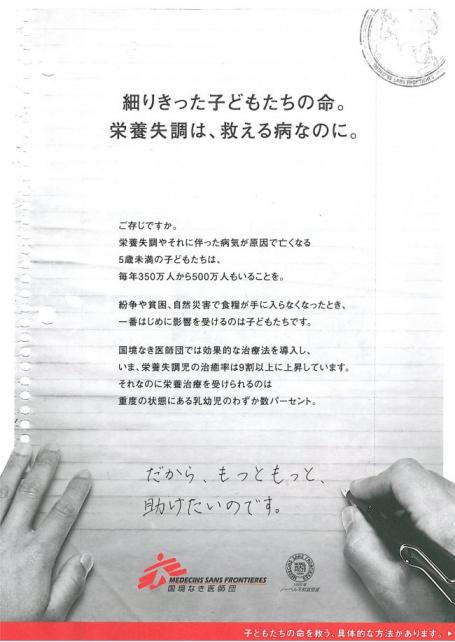 細りきった子どもたちの命。
栄養失調は、救える病なのに。
ご存じですか。
栄養失調やそれに伴った病気が原因で亡くなる
5歳未満の子どもたちは、
毎年350万人から500万人もいることを。
紛争や貧困、自然災害で食糧が手に入らなくなったとき、
一番はじめに影響を受けるのは子どもたちです。
国境なき医師団では効果的な治療法を導入し、
いま、栄養失調児の治癒率は9割以上に上昇しています。
それなのに栄養治療を受けられるのは
重度の状態にある乳幼児のわずか数パーセント。
だから、もっともっと、
助けたいのです。
MEDECINS SANS FRONTIERES
国境なき医師団
ノーベル平和賞受賞
子どもたちの命を救う、具体的な方法があります。